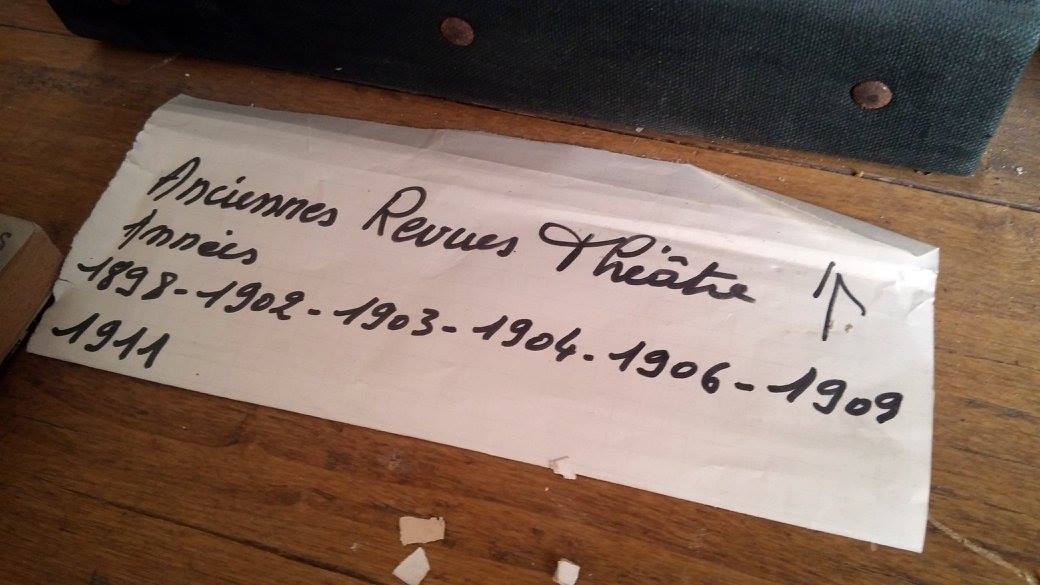 Anciennes Revues Théâtre ↑
Années
1898-1902-1903-1904-1906-1909
1911
S